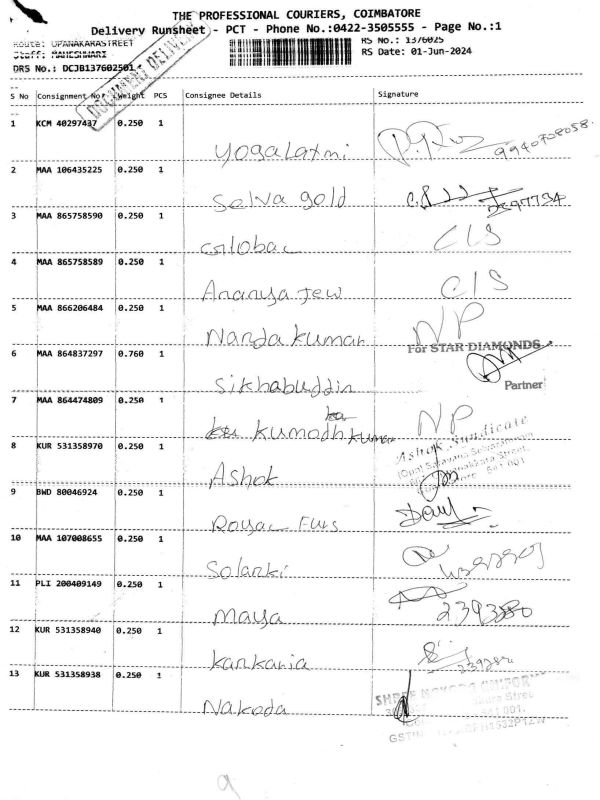 THE PROFESSIONAL COURIERS, COIMBATORE
Delivery Runsheet - PCT - Phone No.:0422-3505555 - Page No.:1
Route: UPANAKARASTREET
RS No.: 1376025
Staff: MAHESHWARI
RS Date: 01-Jun-2024
DRS No.: DCJB137602501
DOCUMENT DELIVERY
S No Consignment No. Weight PCS Consignee Details Signature
1 KCM 40297437 0.250 1
Yogalaxmi 9940708058.
2 MAA 106435225 0.250 1
Selva gold
3 MAA 865758590 0.250 1
Global CLS
4 MAA 865758589 0.250 1
Ananya Jew CLS
5 MAA 866206484 0.250 1
Nanda kumar NP
For STAR DIAMONDS
6 MAA 864837297 0.760 1
Partner
Sikhabuddin
7 MAA 864474809 0.250 1
kumodh kumar NP
8 KUR 531358970 0.250 1
Ashok Syndicate
Ashok
9 BWD 80046924 0.250 1
10 MAA 107008655 0.250 1
Solanki
11 PLI 200409149 0.250 1
Maya 239380
12 KUR 531358940 0.250 1
Kankaria
13 KUR 531358938 0.250 1
Nakoda